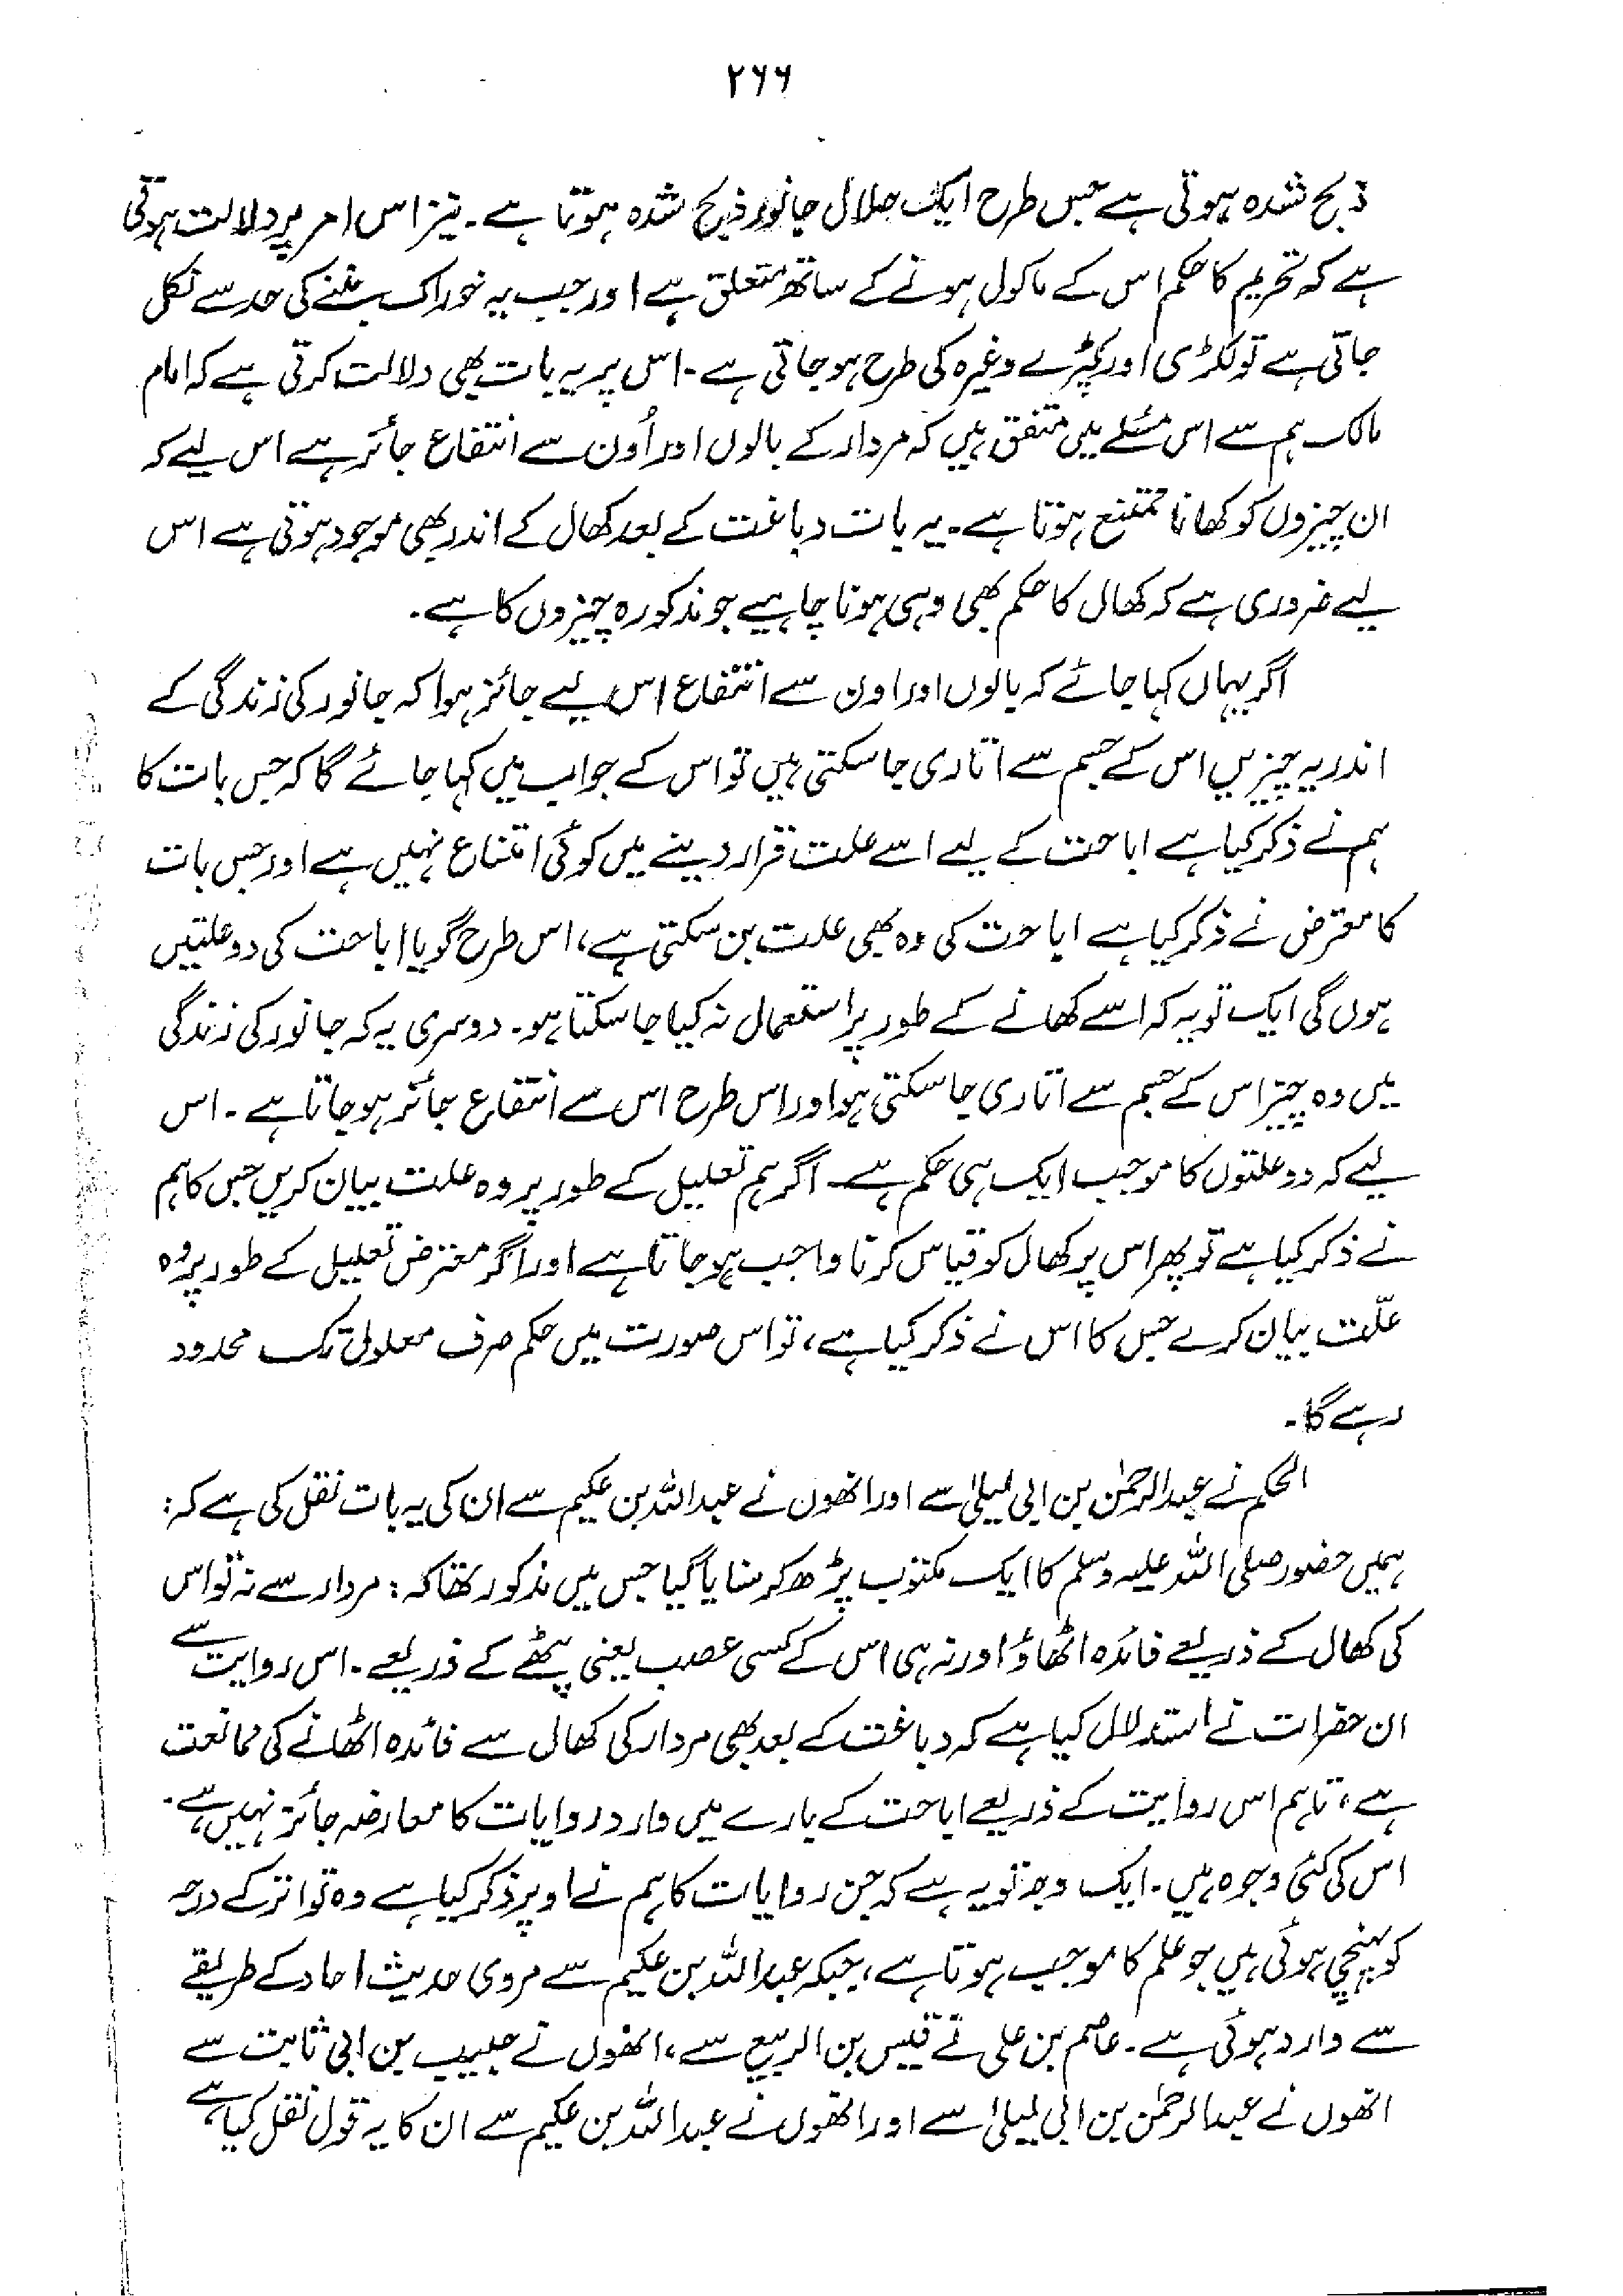 ۲۶۶
ذبح شدہ ہوتی ہے جس طرح ایک حلال جانور ذبح شدہ ہوتا ہے۔ نیز اس امر پر دلالت ہوتی
ہے کہ تحریم کا حکم اس کے ماکول ہونے کے ساتھ متعلق ہے اور جب یہ خوراک بننے کی حد سے نکل
جاتی ہے تو لکڑی اور کپڑے وغیرہ کی طرح ہو جاتی ہے۔ اس پر یہ بات بھی دلالت کرتی ہے کہ امام
مالک ہم سے اس مسئلے میں متفق ہیں کہ مردار کے بالوں اور اُون سے انتفاع جائز ہے اس لیے کہ
ان چیزوں کو کھانا ممتنع ہوتا ہے۔ یہ بات دباغت کے بعد کھال کے اندر بھی موجود ہوتی ہے اس
لیے ضروری ہے کہ کھال کا حکم بھی وہی ہونا چاہیے جو مذکورہ چیزوں کا ہے۔
اگر یہاں کہا جائے کہ بالوں اور اون سے انتفاع اس لیے جائز ہوا کہ جانور کی زندگی کے
اندر یہ چیزیں اس کے جسم سے اتاری جا سکتی ہیں تو اس کے جواب میں کہا جائے گا کہ جس بات کا
ہم نے ذکر کیا ہے اباحت کے لیے اسے علت قرار دینے میں کوئی امتناع نہیں ہے اور جس بات
کا معترض نے ذکر کیا ہے اباحت کی وہ بھی علت بن سکتی ہے، اس طرح گویا اباحت کی دو علتیں
ہوں گی ایک تو یہ کہ اسے کھانے کے طور پر استعمال نہ کیا جا سکتا ہو۔ دوسری یہ کہ جانور کی زندگی
میں وہ چیز اس کے جسم سے اتاری جا سکتی ہو اور اس طرح اس سے انتفاع جائز ہو جاتا ہے۔ اس
لیے کہ دو علتوں کا موجب ایک ہی حکم ہے۔ اگر ہم تعلیل کے طور پر وہ علت بیان کریں جس کا ہم
نے ذکر کیا ہے تو پھر اس پر کھال کو قیاس کرنا واجب ہو جاتا ہے اور اگر معترض تعلیل کے طور پر وہ
علّت بیان کرے جس کا اس نے ذکر کیا ہے، تو اس صورت میں حکم صرف معلول تک محدود
رہے گا۔
الحکم نے عبدالرحمٰن بن ابی لیلیٰ سے اور انھوں نے عبداللہ بن عکیم سے ان کی یہ بات نقل کی ہے کہ:
ہمیں حضور صلی اللہ علیہ وسلم کا ایک مکتوب پڑھ کر سنایا گیا جس میں مذکور تھا کہ: مردار سے نہ تو اس
کی کھال کے ذریعے فائدہ اٹھاؤ اور نہ ہی اس کے کسی عصب یعنی پٹھے کے ذریعے۔ اس روایت سے
ان حضرات نے استدلال کیا ہے کہ دباغت کے بعد بھی مردار کی کھال سے فائدہ اٹھانے کی ممانعت
ہے، تاہم اس روایت کے ذریعے اباحت کے بارے میں وارد روایات کا معارضہ جائز نہیں ہے۔
اس کی کئی وجوہ ہیں۔ ایک وجہ تو یہ ہے کہ جن روایات کا ہم نے اوپر ذکر کیا ہے وہ تواتر کے درجہ
کو پہنچی ہوئی ہیں جو علم کا موجب ہوتا ہے، جبکہ عبداللہ بن عکیم سے مروی حدیث احاد کے طریقے
سے وارد ہوئی ہے۔ عاصم بن علی نے قیس بن الربیع سے، انھوں نے حبیب بن ابی ثابت سے
انھوں نے عبدالرحمٰن بن ابی لیلیٰ سے اور انھوں نے عبداللہ بن عکیم سے ان کا یہ قول نقل کیا ہے